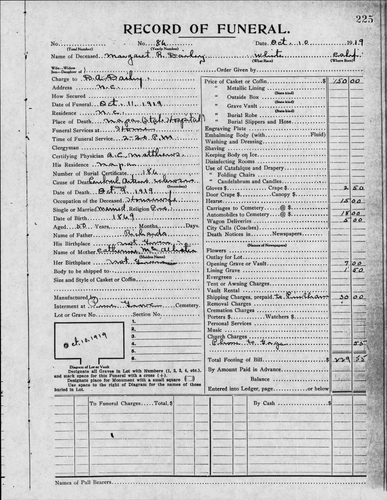 225
RECORD OF FUNERAL.
No. No. 86 Date Oct. 10 1919
(Total Number) (Yearly Number)
Name of Deceased Margaret R. Dailey White Calif.
(What Race) (Where Born)
Wife—Widow
Son—Daughter of
Order Given by
Charge to D.A. Dailey
Address N.C.
How Secured
Date of Funeral Oct. 11, 1919
Residence N.C.
Place of Death Napa State Hospital
Funeral Services at Home
Time of Funeral Service 2-30 P.M.
Clergyman
Certifying Physician A.C. Matthews
His Residence Napa
Number of Burial Certificate 186
Cause of Death
Date of Death Oct. 9, 1919
Occupation of the Deceased Housewife
Single or Married Married Religion
Date of Birth 1869
Aged Years Months Days
Name of Father Richards
His Birthplace not known
Name of Mother Catherine
(Maiden Name)
Her Birthplace not known
Body to be shipped to
Size and Style of Casket or Coffin
Manufactured by
Interment at Cemetery
Lot or Grave No. Section No.
Oct. 12, 1919
Diagram of Lot or Vault
Designate all Graves in Lot with Numbers (1, 2, 3, 4, etc.)
and mark space for this Funeral with a cross (+).
Designate place for Monument with a small square
Use space to right of Diagram for the names of those
buried in Lot.
Price of Casket or Coffin $ 150 00
" Metallic Lining
(State kind)
" Outside Box
(State kind)
" Grave Vault
(State kind)
" Burial Robe
(State kind)
" Burial Slippers and Hose
Engraving Plate
Embalming Body (with Fluid)
Washing and Dressing
Shaving
Keeping Body on Ice
Disinfecting Rooms
Use of Catafalque and Drapery
" Folding Chairs
" Candelabrum and Candles
Gloves $ Crepe $ 2 50
Door Crepe Candles $
Hearse 15 00
Carriages to Cemetery @ $
Automobiles to Cemetery @ $ 18 00
Wagon Deliveries 5 00
City Calls (Coaches)
Death Notices in Newspapers
(Names of Newspapers)
Flowers
Outlay for Lot
Opening Grave or Vault 7 00
Lining Grave 1 50
Evergreen
Tent or Awning Charges
Vault Rental
Shipping Charges, prepaid 30 00
Removal Charges
Cremation Charges
Porters $ Watchers $
Personal Services
Music
Church Charges
55
Total Footing of Bill $ 229 55
By Amount Paid in Advance
Balance
Entered into Ledger, page or below
To Funeral Charges Total $ By Cash $
Names of Pall Bearers